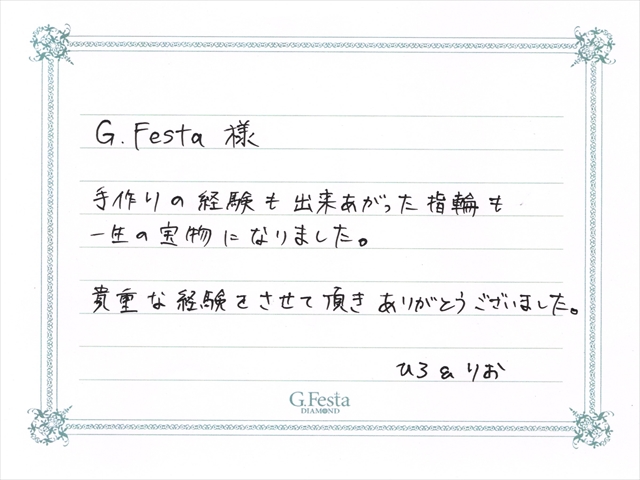 G.Festa 様
手作りの経験も出来あがった指輪も
一生の宝物になりました。
貴重な経験をさせて頂きありがとうございました。
ひろ&りお
G.Festa
DIAMOND